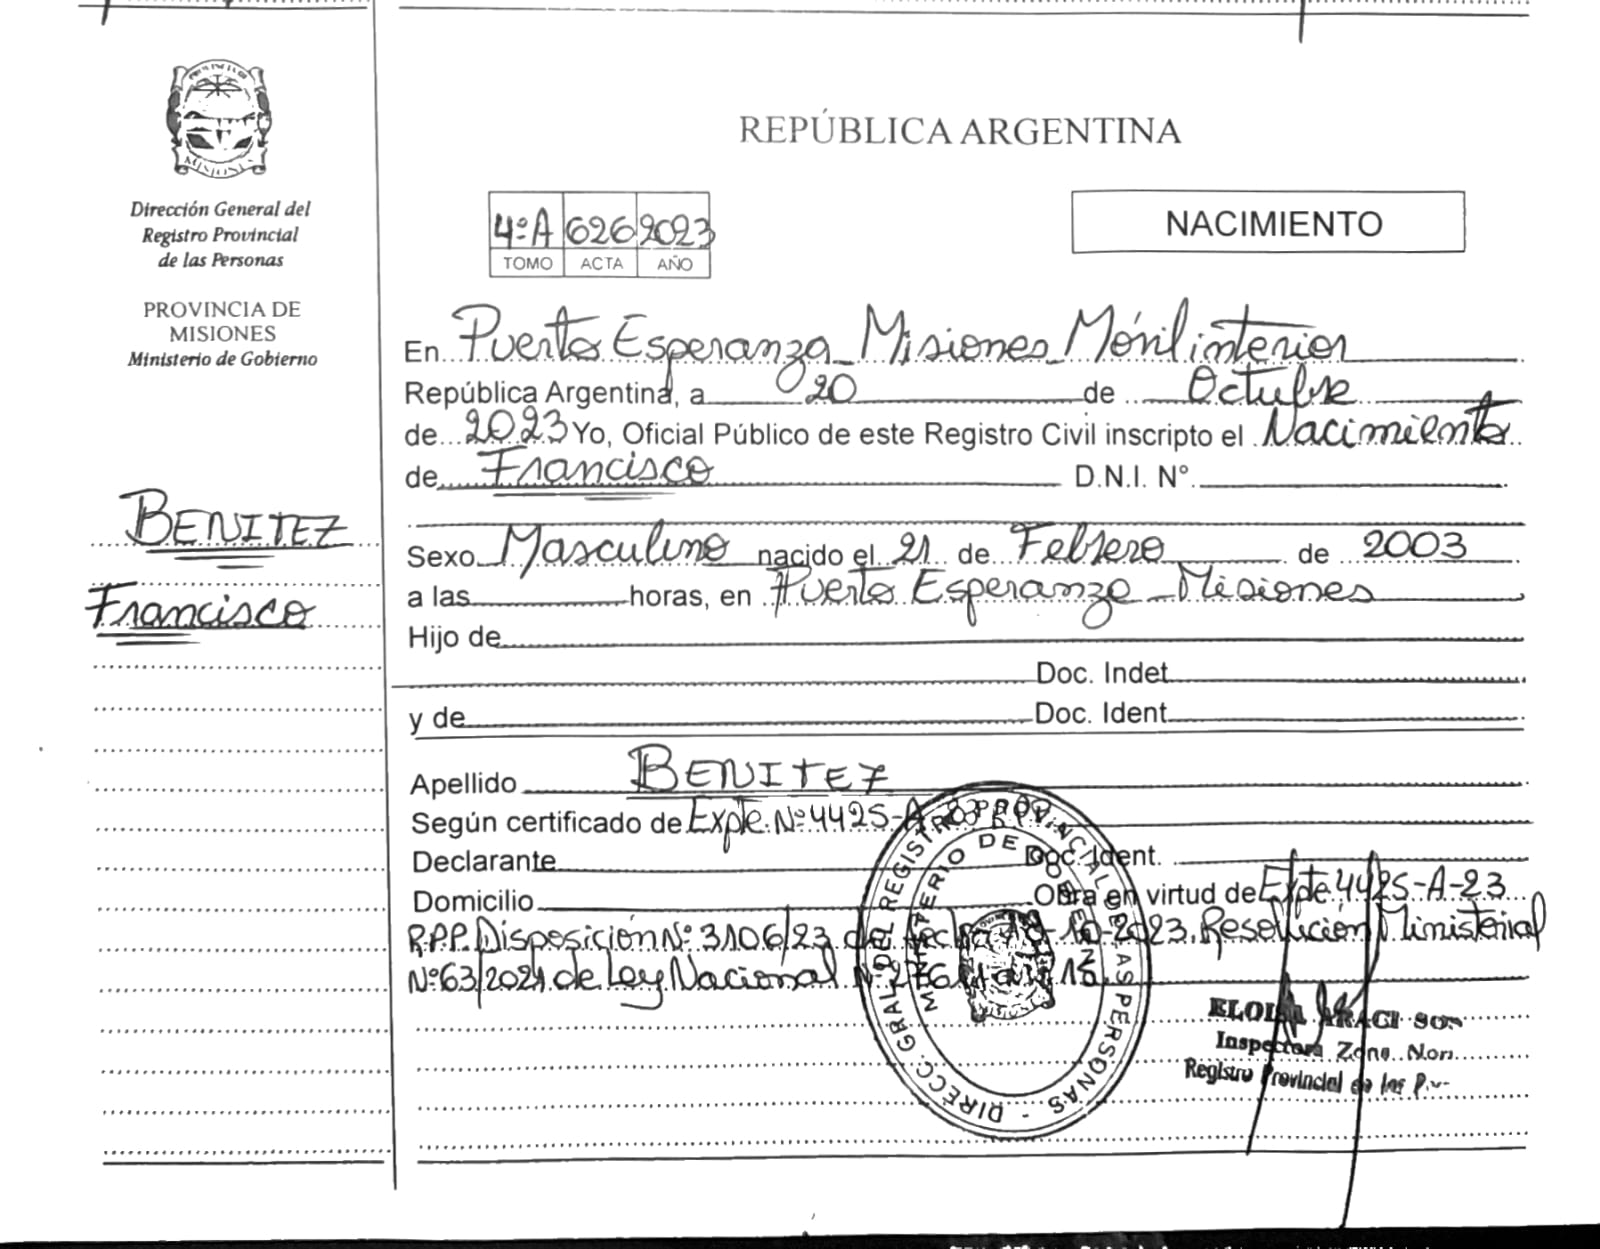 PROVINCIA DE
MISIONES
Dirección General del
Registro Provincial
de las Personas
PROVINCIA DE
MISIONES
Ministerio de Gobierno
BENITEZ
Francisco
REPÚBLICA ARGENTINA
4º A 626 2023
TOMO ACTA AÑO
NACIMIENTO
En Puerto Esperanza - Misiones Móvil interior
República Argentina, a 20 de Octubre
de 2023 Yo, Oficial Público de este Registro Civil inscripto el Nacimiento
de Francisco D.N.I. N°
Sexo Masculino nacido el 21 de Febrero de 2003
a las horas, en Puerto Esperanza - Misiones
Hijo de
Doc. Indet
y de Doc. Ident
Apellido BENITEZ
Según certificado de Expte. Nº 4425-A-23
Declarante Doc. Ident.
Domicilio Obra en virtud de Expte 4425-A-23
R.P.P. Disposición Nº 3106/23 de fecha 10-2023. Resolución Ministerial
Nº 63/2021 de Ley Nacional Nº
DIRECC. GRAL. DEL REGISTRO PROVINCIAL DE LAS PERSONAS -
MINISTERIO DE GOBIERNO
Inspectora Zona
Registro Provincial de las